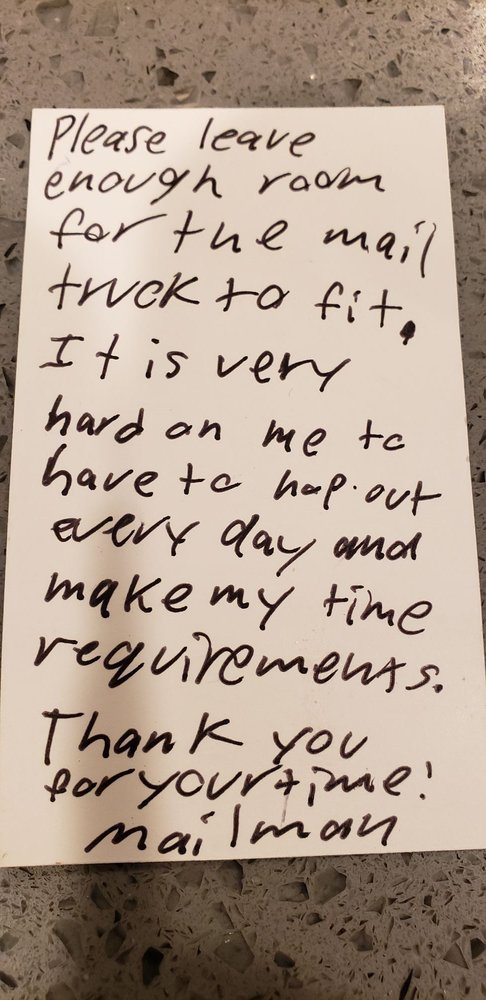 Please leave
enough room
for the mail
truck to fit.
It is very
hard on me to
have to hop out
every day and
make my time
requirements.
Thank you
for your time!
mailman